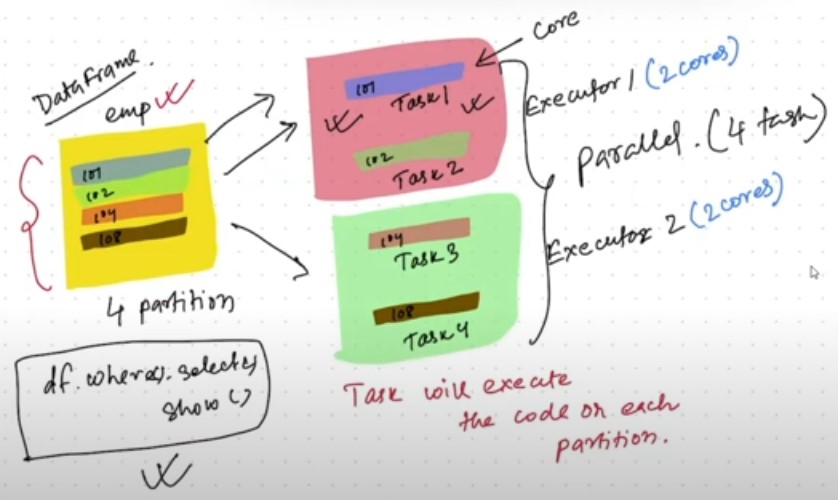 DataFrame.
emp
101
102
104
108
4 partition
df.where().select()
show()
Core
101
Task 1
102
Task 2
104
Task 3
108
Task 4
Executor 1 (2 cores)
Parallel. (4 task)
Executor 2 (2 cores)
Task will execute
the code on each
partition.